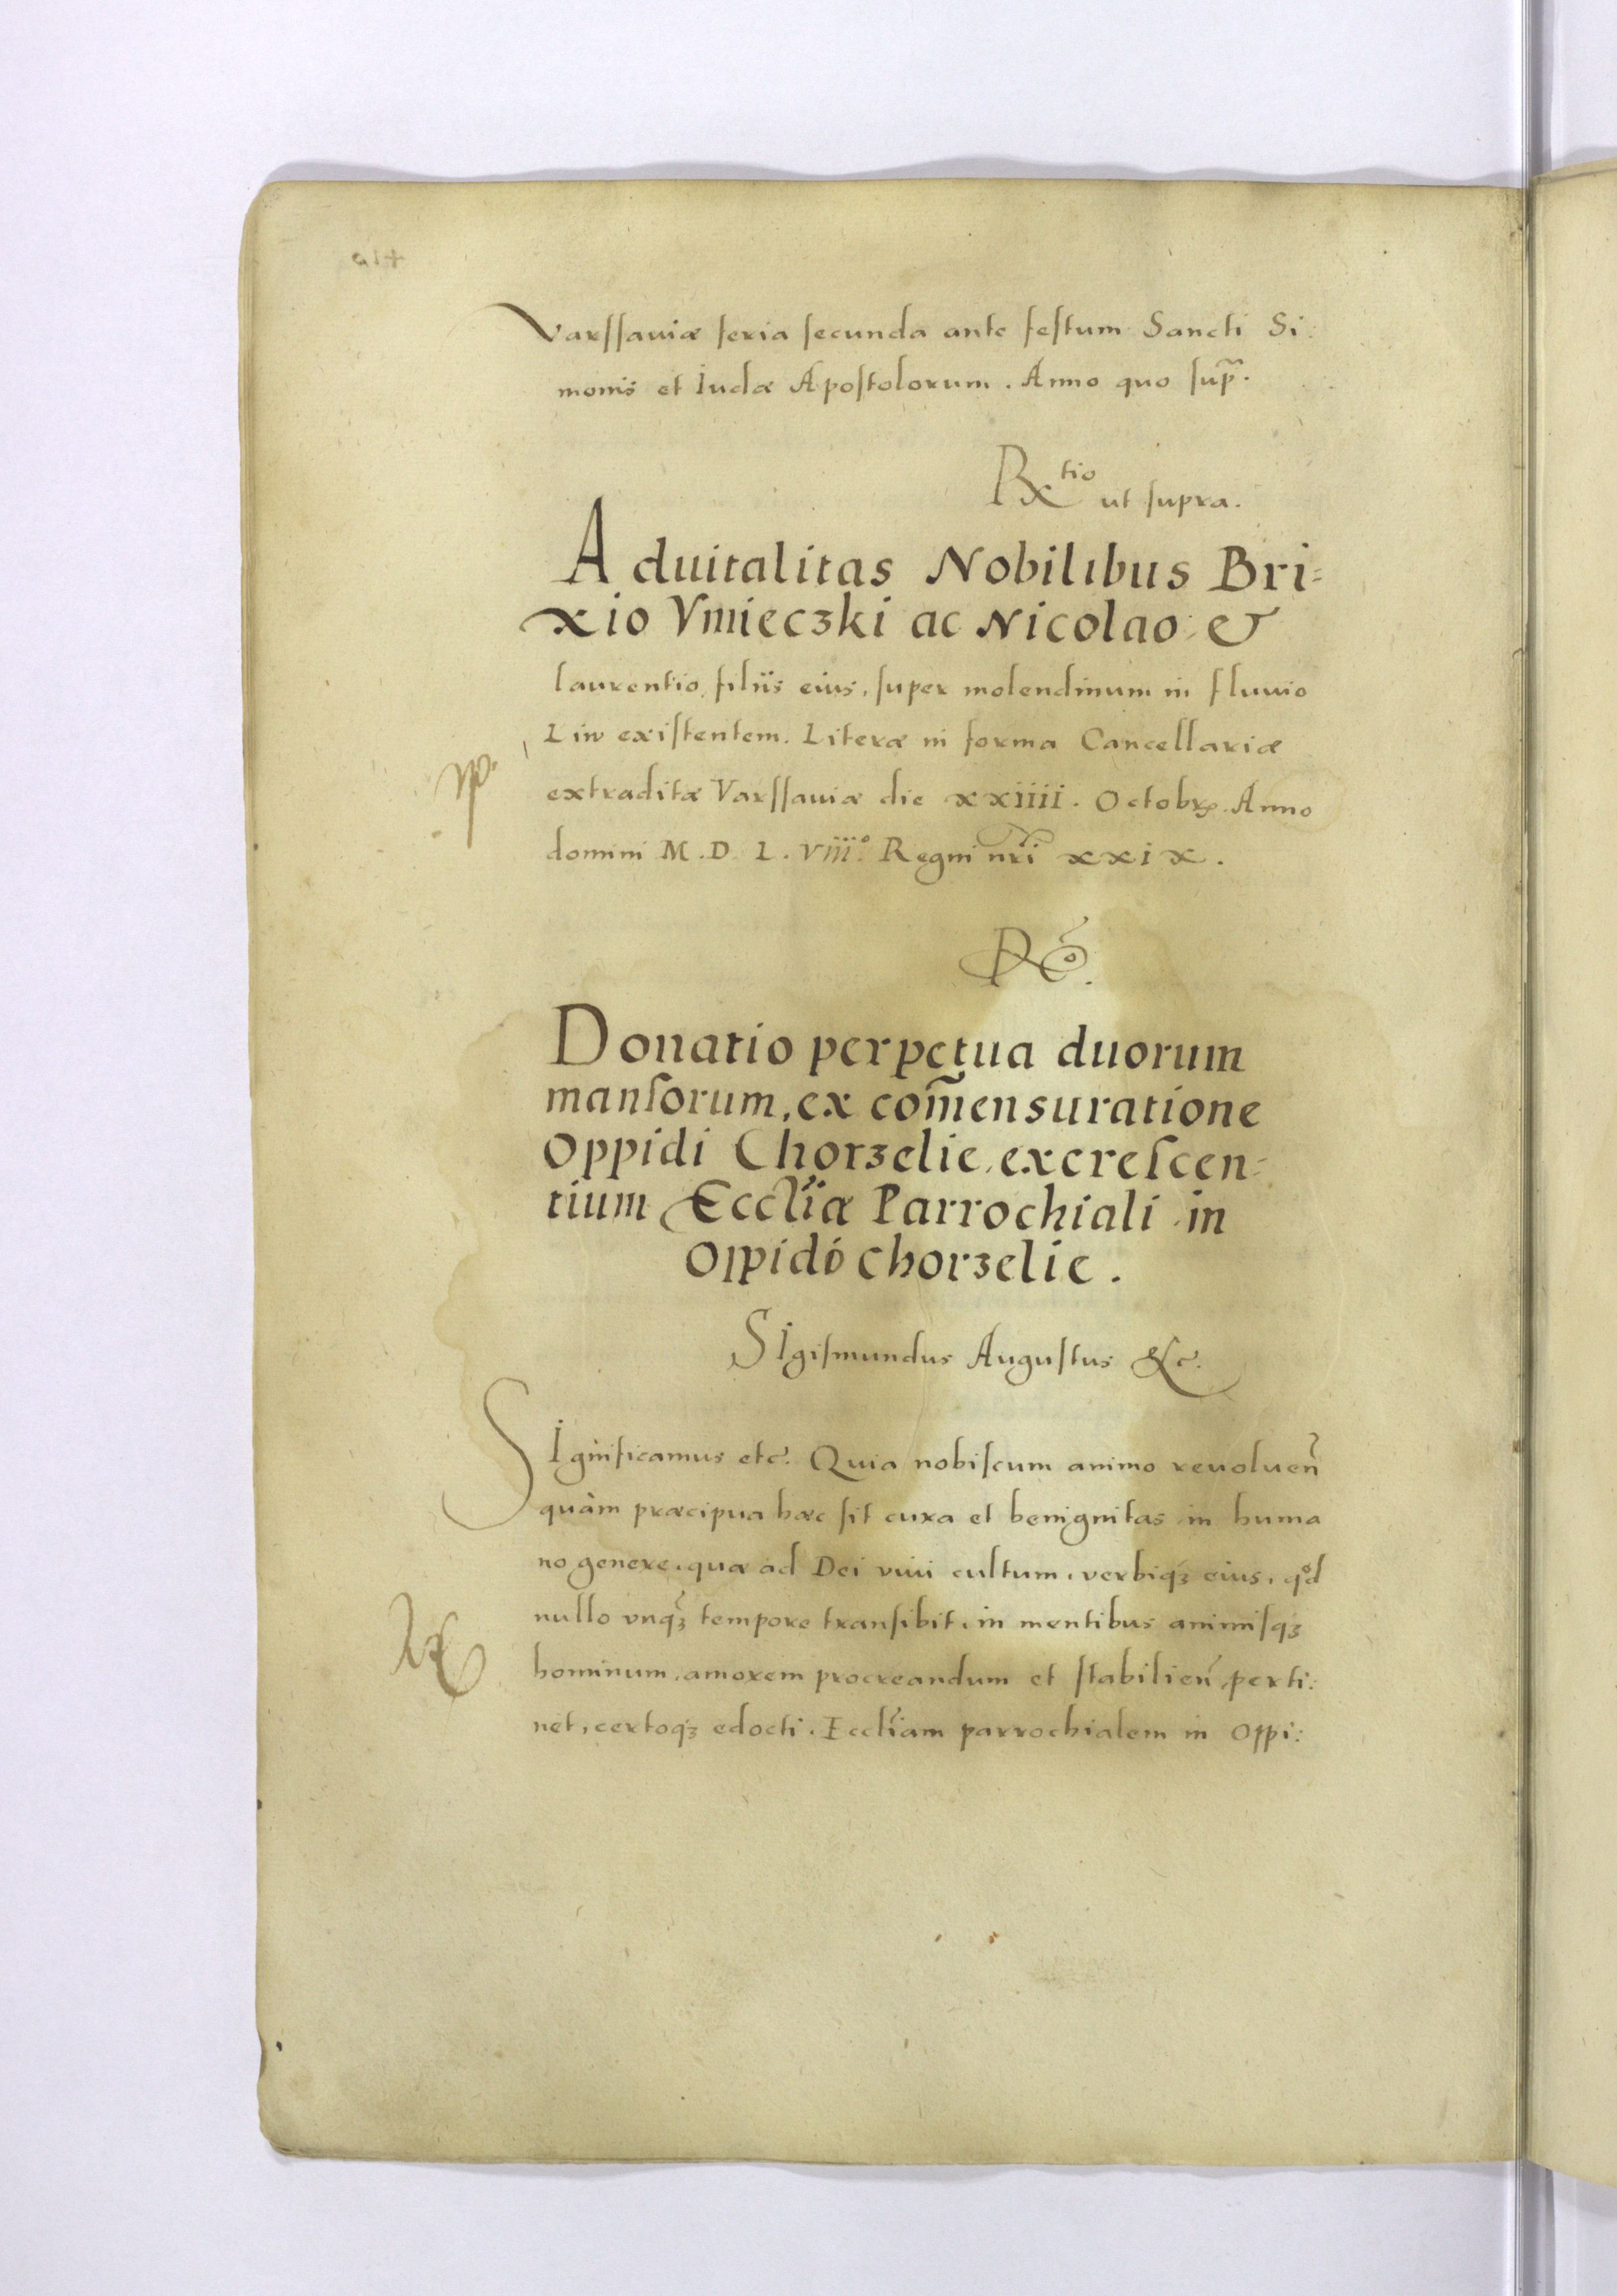 Varſſauiæ feria ſecunda ante feſtum Sancti Si:
monis et Iudæ Apoſtolorum. Anno quo ſup̃.
Rtio ut ſupra.
Aduitalitas Nobilibus Bri=
xio Vmieczki ac Nicolao &
laurentio, filiis eius, ſuper molendinum in fluuio
Liw exiſtentem. Literæ in forma Cancellariæ
extraditæ Varſſauiæ die xxiiii. Octobr. Anno
domini M.D.L.viii.° Regni nr̃i xxix.
Donatio perpetua duorum
manſorum, ex com̃ensuratione
Oppidi Chorzelie, excreſcen=
tium Eccl̃iæ Parrochiali in
Oppido Chorzelie.
SIgiſmundus Auguſtus &c.
SIgnificamus etc. Quia nobiſcum animo reuoluen̄
quàm præcipua hæc ſit cura et benignitas in huma
no genere, quæ ad Dei viui cultum, verbiqꝫ eius, qͦd
nullo vnqꝫ̃ tempore tranſibit, in mentibus animiſqꝫ
hominum, amorem procreandum et ſtabilien̄ perti:
net, certoqꝫ edocti, Eccl̃iam parrochialem in Oppi: